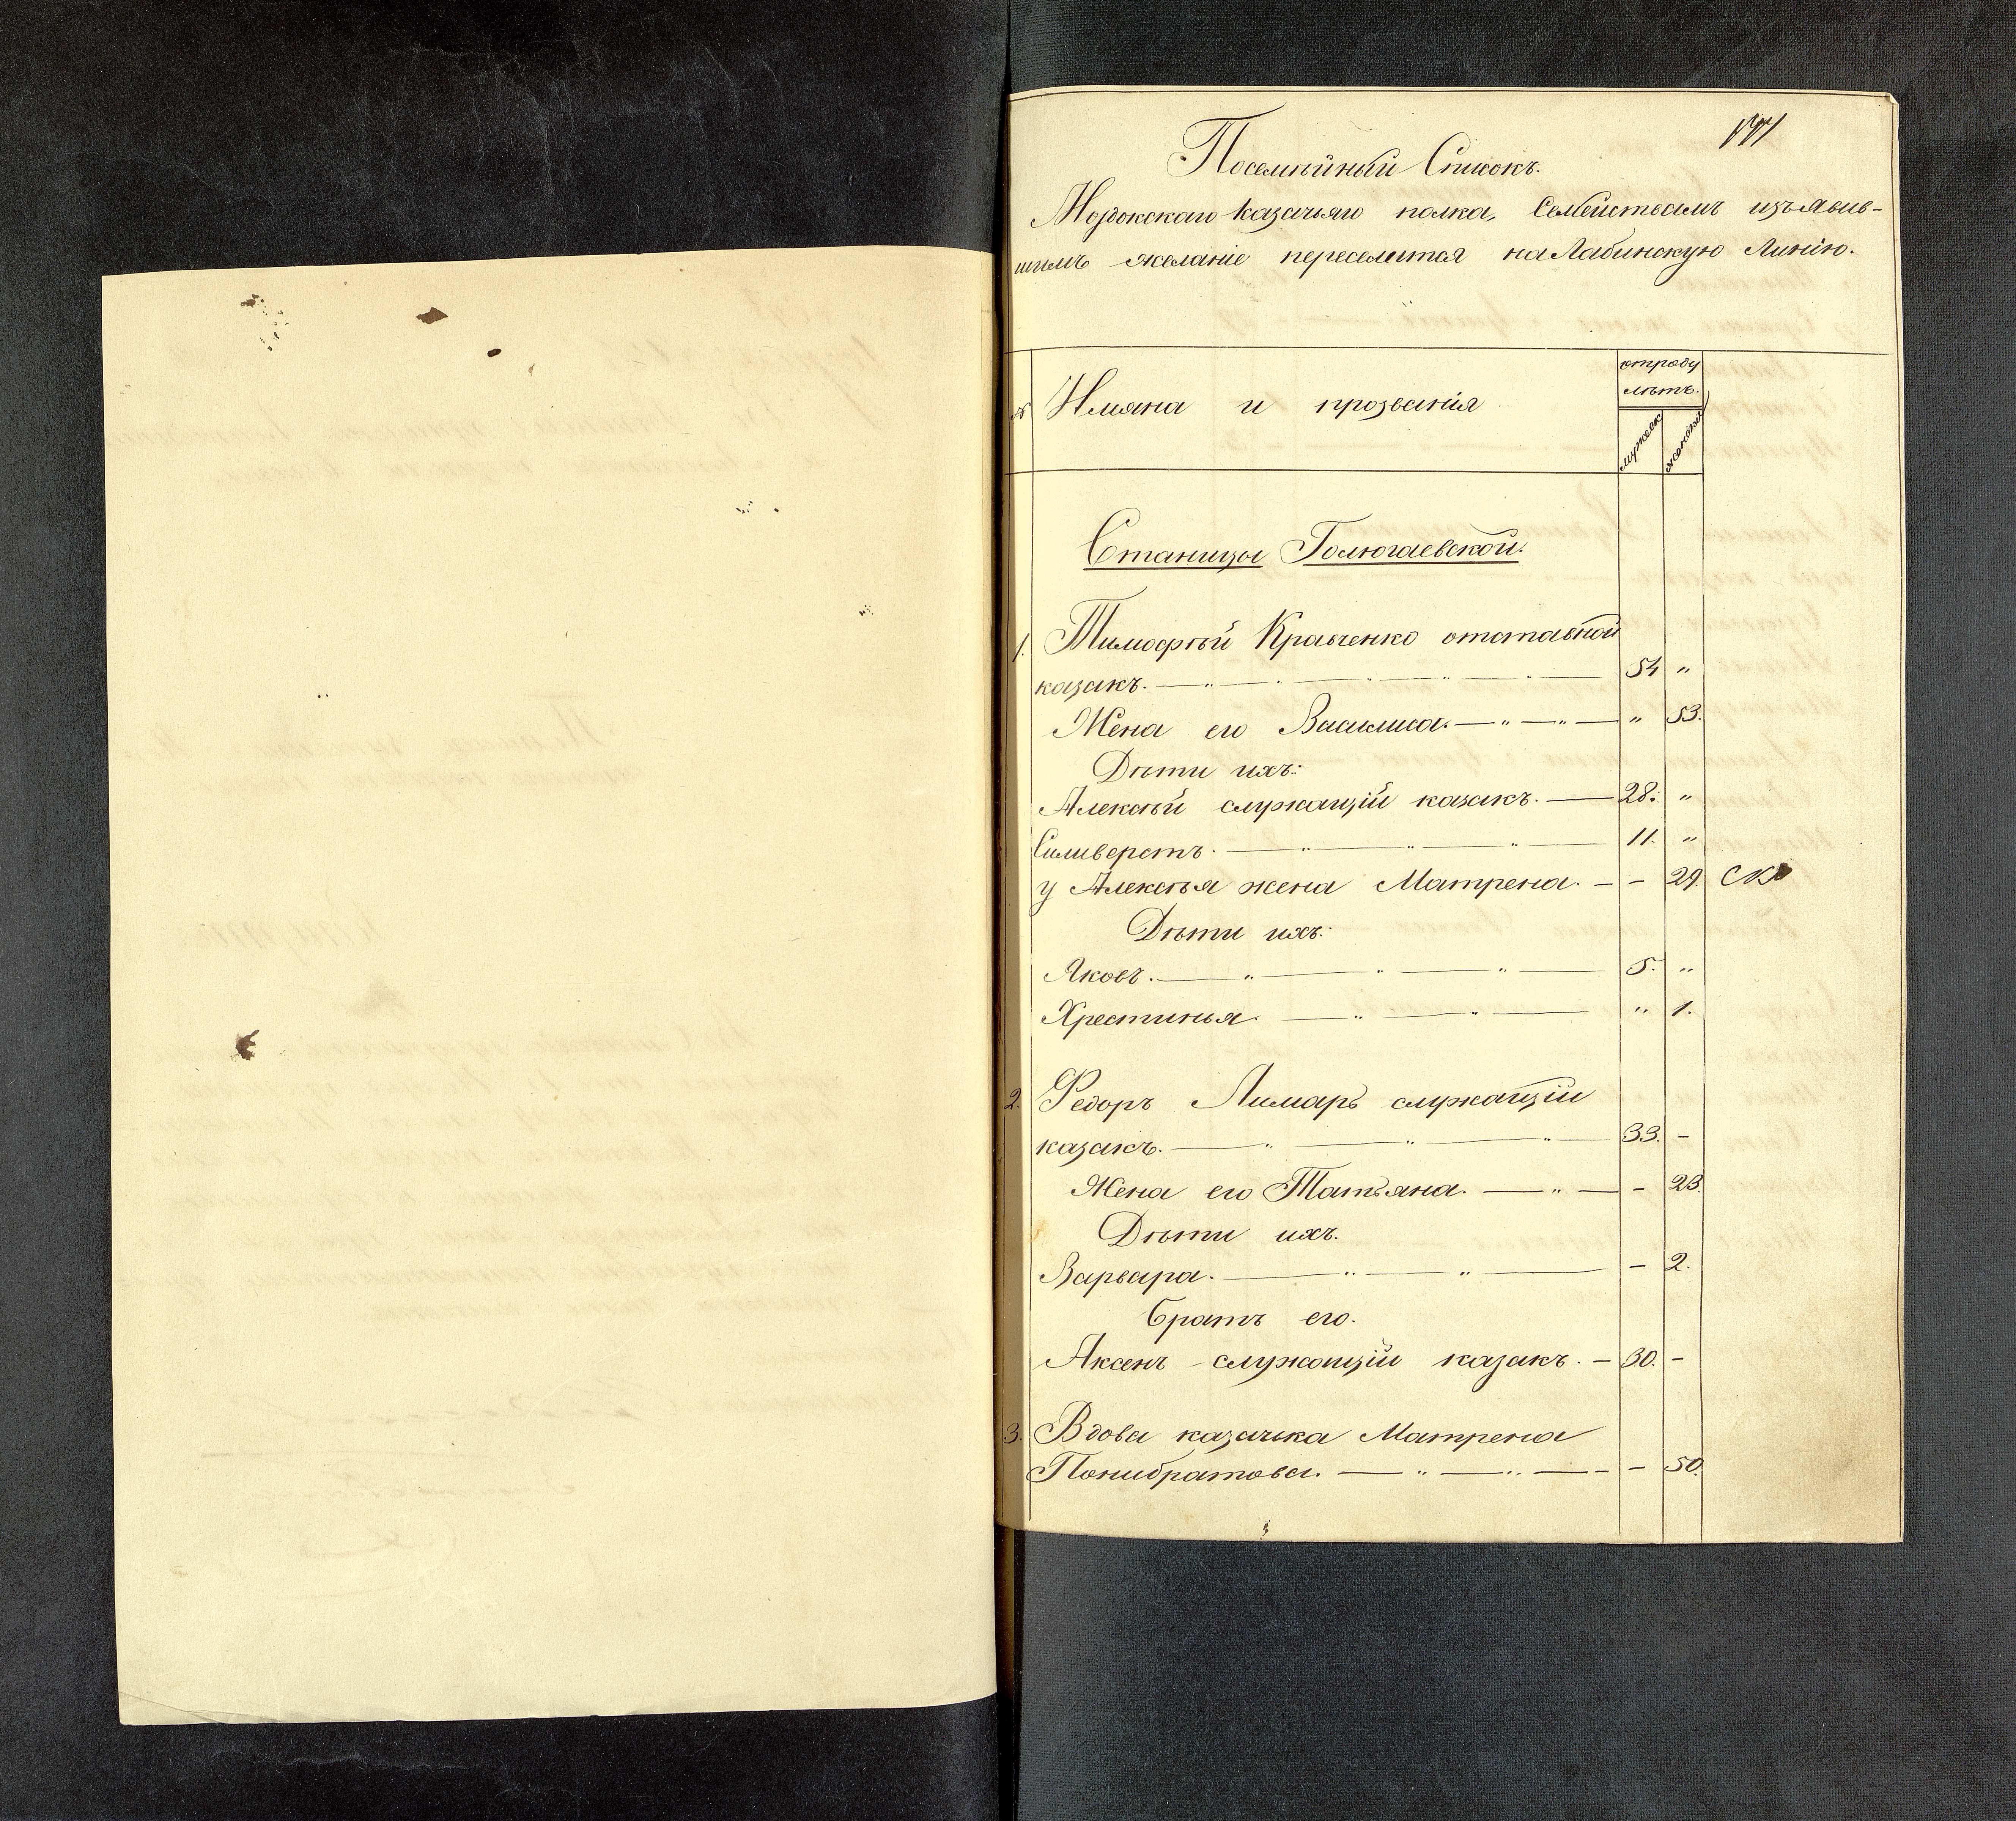 171
Посемѣйный Списокъ.
Моздокскаго казачьяго полка, семействамъ изъявив-
шимъ желаніе переселится на Лабинскую Линію.
№ Имяна и прозванія
отроду
лѣтъ.
мужеск женска
Станицы Голюгаевской.
1. Тимофѣй Кравченко отставной
казакъ. — " — " — " — " — " — 54 "
Жена его Василиса. — " — " — " 53.
Дѣти ихъ:
Алексѣй служащій казакъ. — 28. "
Силиверстъ. — " — " — " — 11. "
у Алексѣя жена Матрена. - - 29. СК
Дѣти ихъ:
Яковъ. — " — " — " — 5. "
Хрестинья. — " — " — " 1.
2. Федоръ Лимарь служащій
казакъ. — " — " — " — 33. -
Жена его Татьяна. — " — - 23.
Дѣти ихъ.
Варвара. — " — " — - 2.
братъ его.
Аксенъ служащій казакъ. - 30. -
3. Вдова казачка Матрена
Понибратова. — " — " — - - 50.